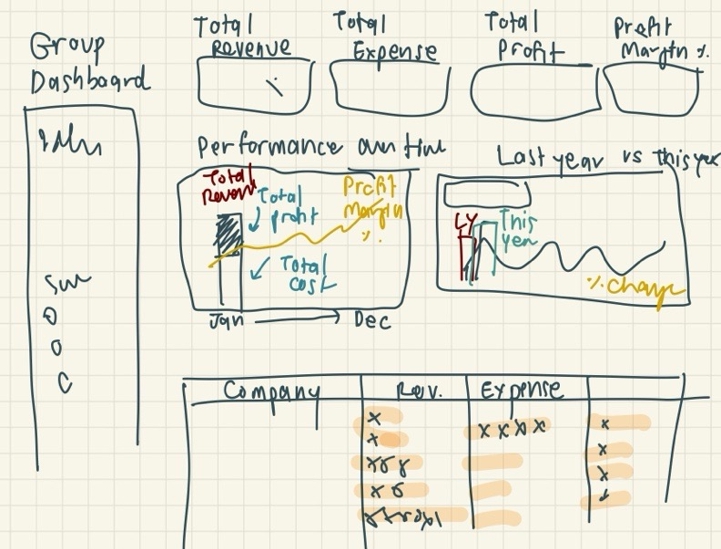 Group
Dashboard
Total
Revenue
Total
Expense
Total
Profit
Profit
Margin %
Performance
Last year vs this year
Total
Reven
Total
profit
Profit
Margin
%.
Total
cost
Jan
Dec
LY
This
year
% Change
Company
Rev.
Expense
x
x
x
x x x x
x
x
x